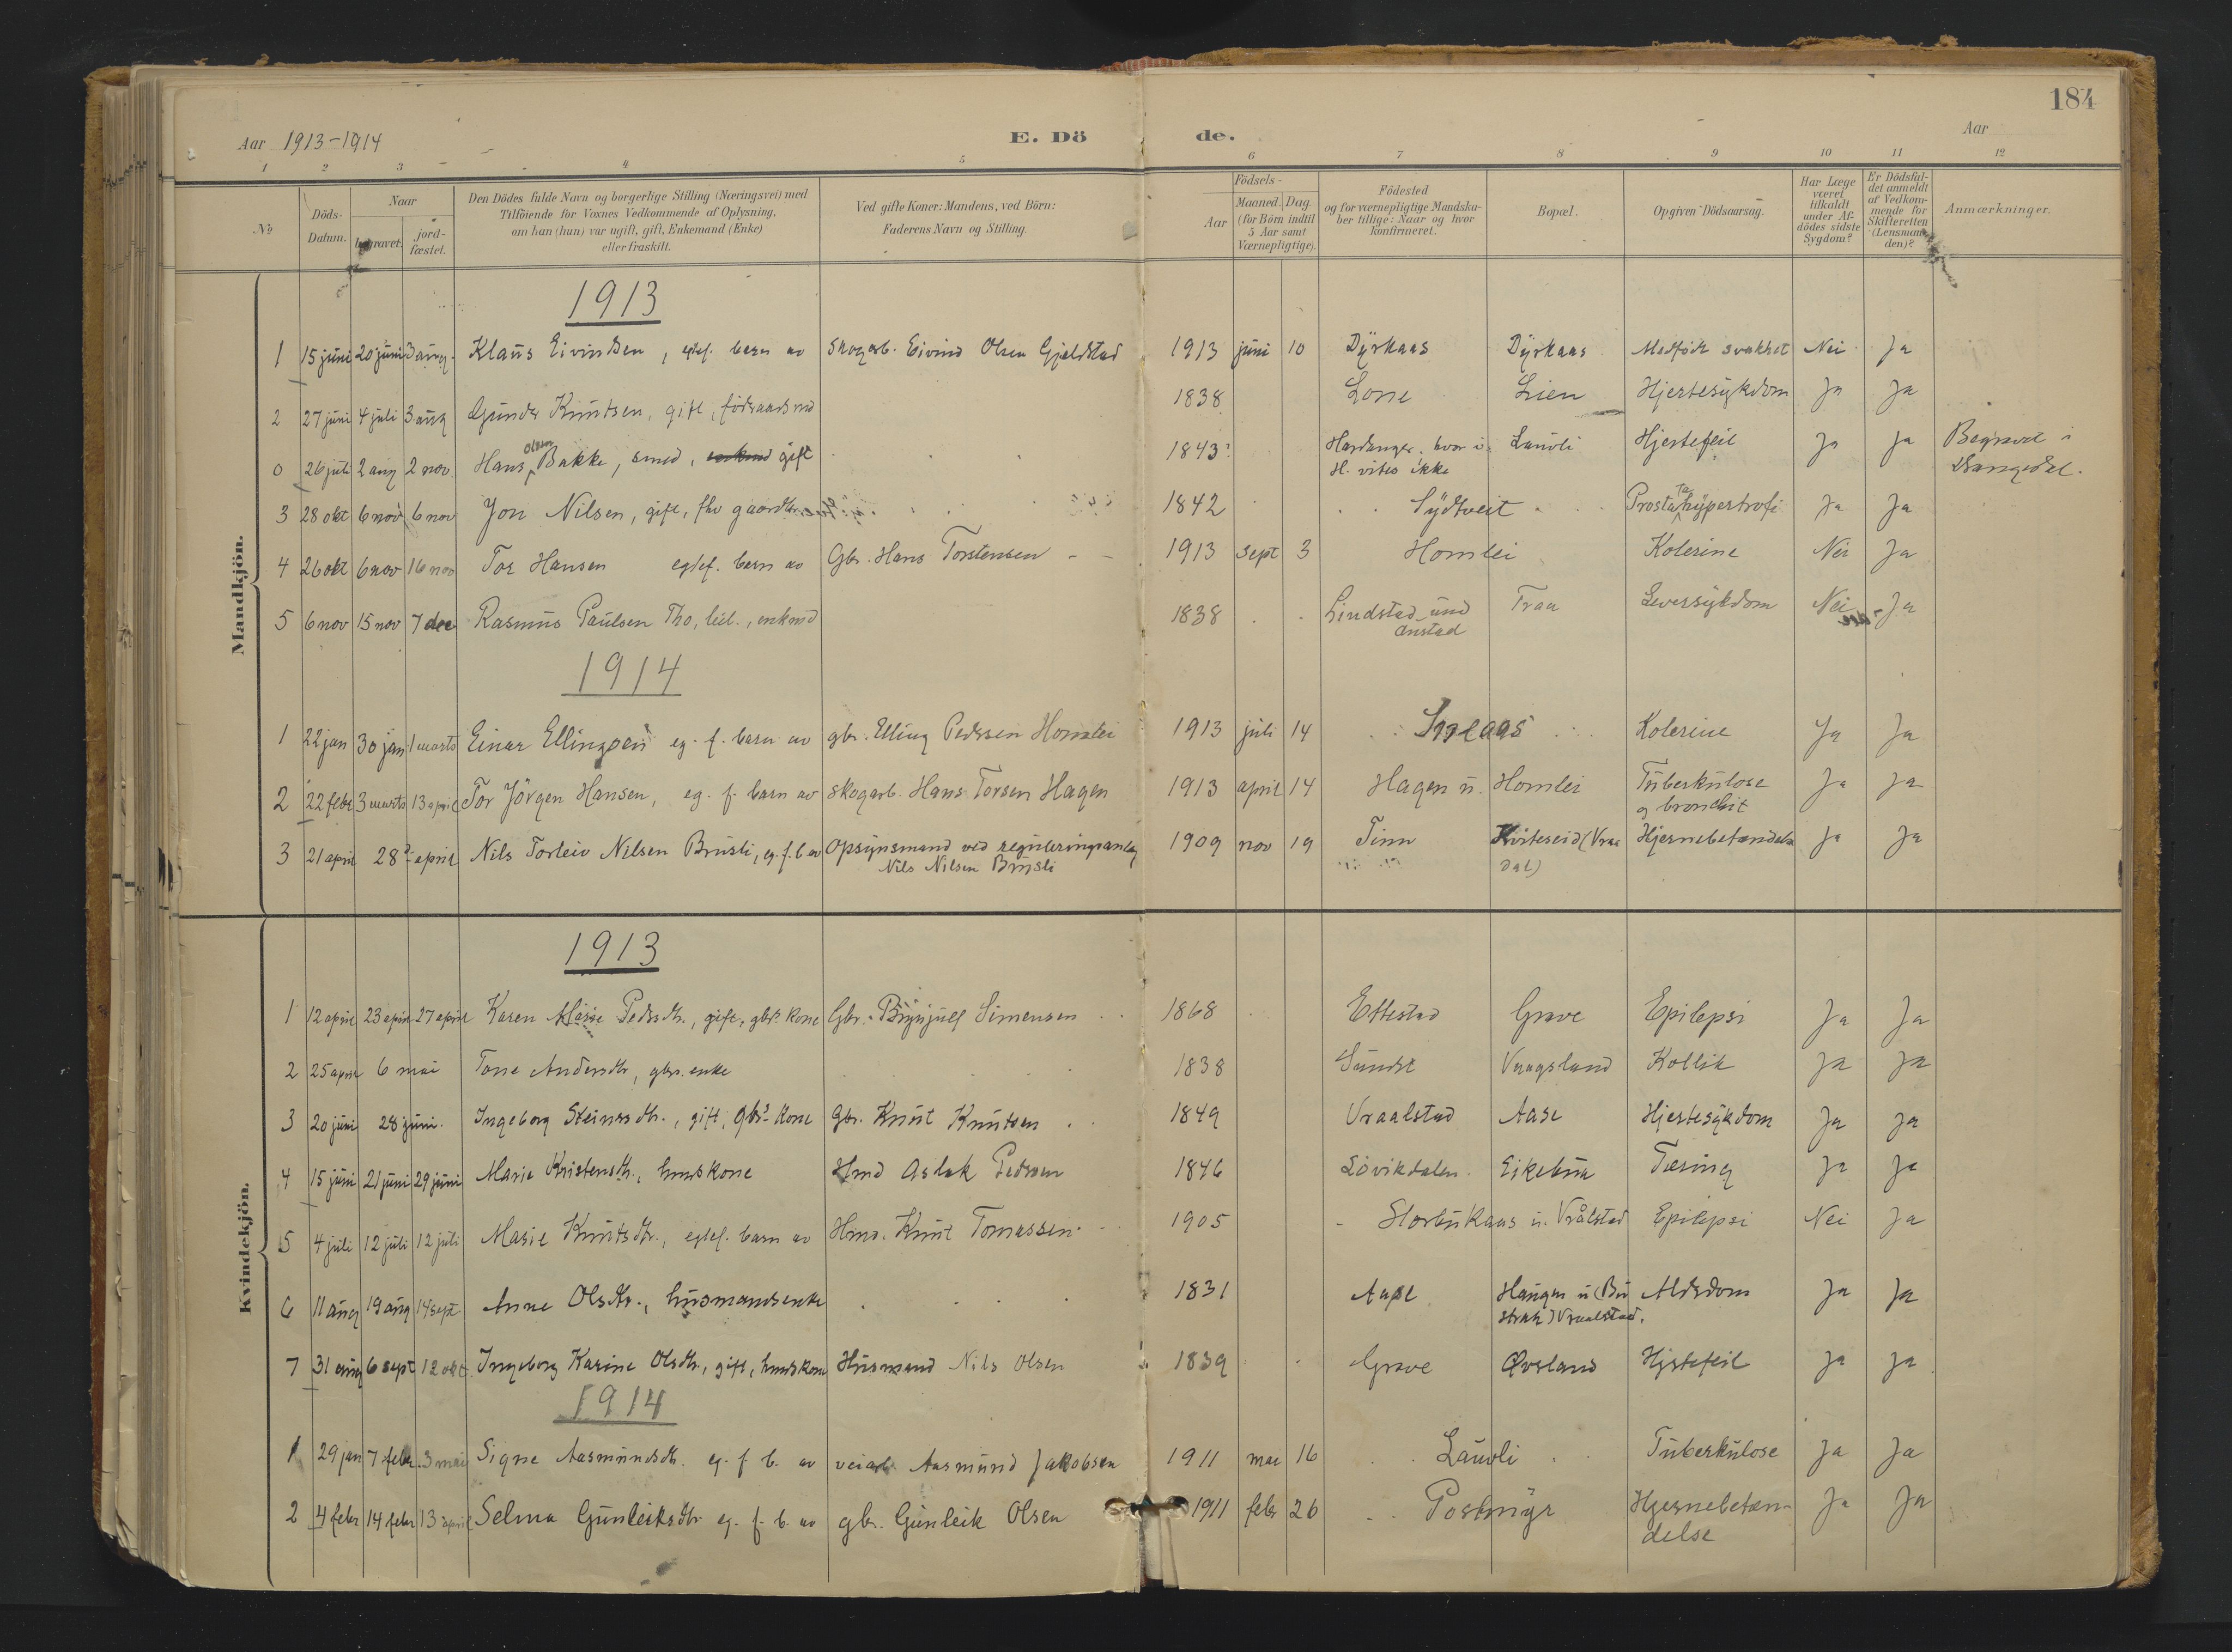 184
Aar 1913-1914 E. Dö de. Aar
1 2 3 4 5 6 7 8 9 10 11 12
No
Döds-Datum.
Naar begravet. jord-fæstet.
Den Dödes fulde Navn og borgerlige Stilling (Næringsvei) med
Tilföiende for Voxnes Vedkommende af Oplysning,
om han (hun) var ugift, gift, Enkemand (Enke)
eller fraskilt.
Ved gifte Koner: Mandens, ved Börn:
Faderens Navn og Stilling.
Födsels-
Aar
Maaned. Dag
(for Börn indtil
5 Aar samt
Værnepligtige).
Födested
og for værnepligtige Mandska-
ber tillige: Naar og hvor
konfirmeret.
Bopæl.
Opgiven Dödsaarsag.
Har Læge
været
tilkaldt
under Af-
dödes sidste
Sygdom?
Er Dödsfal-
det anmeldt
af Vedkom-
mende for
Skifteretten
(Lensman-
den)?
Anmærkninger.
Mandkjön.
1913
1 15 juni 20 juni 3 aug. Klaus Eivindsen, egtef. barn av skogarb. Eivind Olsen Gjeldstad 1913 juni 10 Dyrkaas Dyrkaas Medfödt svakhet Nei Ja
2 27 juni 4 juli 3 aug Gunder Knutsen, gift, föderaadsmd 1838 Lone Lien Hjertesykdom Ja Ja
0 26 juli 2 aug 2 nov. Hans Olsen Bakke, smed, enkmd gift 1843? Hardanger. hvor i H. vites ikke Lauvli Hjertefeil Ja Ja Begravet i Drangedal.
3 28 okt 6 nov 6 nov Jon Nilsen, gift, fhv gaardbr. 1842 Sydtveit Prostatahypertrofi Ja Ja
4 26 okt 6 nov 16 nov Tor Hansen egtef. barn av Gbr. Hans Torstensen 1913 sept 3 Homlei Kolerine Nei Ja
5 6 nov 15 nov 7 dec Rasmus Paulsen Tho, leil., enkmd 1838 Lindstad und Anstad Traa Leversykdom Nei Ja
1914
1 22 jan 30 jan 1 marts Einar Ellingsen eg. f. barn av gbr. Elling Pedersen Homlei 1913 juli 14 Kolerine Ja Ja
2 22 febr 3 marts 13 april Tor Jörgen Hansen, eg. f. barn av skogarb. Hans Torsen Hagen 1913 april 14 Hagen u. Homlei Tuberkulose og bronchit Ja Ja
3 21 april 28 april Nils Torleiv Nilsen Brusli, eg. f. b av Opsynsmand ved reguleringsanlæg Nils Nilsen Brusli 1909 nov 19 Tinn Kviteseid (Vraadal) Hjernebetændelse Ja Ja
Kvindekjön.
1913
1 12 april 23 april 27 april Karen Marie Pedersdtr., gift, gbrs kone Gbr. Brynjulf Simensen 1868 Ettestad Grave Epilepsi Ja Ja
2 25 april 6 mai Tone Andersdtr, gbr. enke 1838 Sundet Vraagsland Kollik Ja Ja
3 20 juni 28 juni. Ingeborg Steinarsdtr., gift, gbrs kone Gbr. Knut Knutsen 1849 Vraalstad Aase Hjertesykdom Ja Ja
4 15 juni 21 juni 29 juni Marie Kristensdtr., hmdskone Hmd Aslak Pedersen 1846 Lövikdalen Eikebua Tæring Ja Ja
5 4 juli 12 juli 12 juli Marie Knutsdtr., egtef. barn av Hmd. Knut Tomassen 1905 Storbukaas u. Vrålstad Epilepsi Nei Ja
6 11 aug 19 aug 14 sept Anne Olsdtr., husmandsenke 1831 Aase Haugen u (Bustrak) Vraalstad. Alderdom Ja Ja
7 31 aug 6 sept 12 okt. Ingeborg Karine Olsdtr., gift, hmdskone Husmand Nils Olsen 1839 Grave Øvsland Hjertefeil Ja Ja
1914
1 29 jan 7 febr. 3 mai Signe Aasmundsdtr. eg. f. b. av veiarb Aasmund Jakobsen 1911 mai 16 Lauvli Tuberkulose Ja Ja
2 4 febr 14 febr 13 april Selma Gunleiksdtr. eg. f. b. av gbr. Gunleik Olsen 1911 febr 26 Postmyr Hjernebetændelse Ja Ja